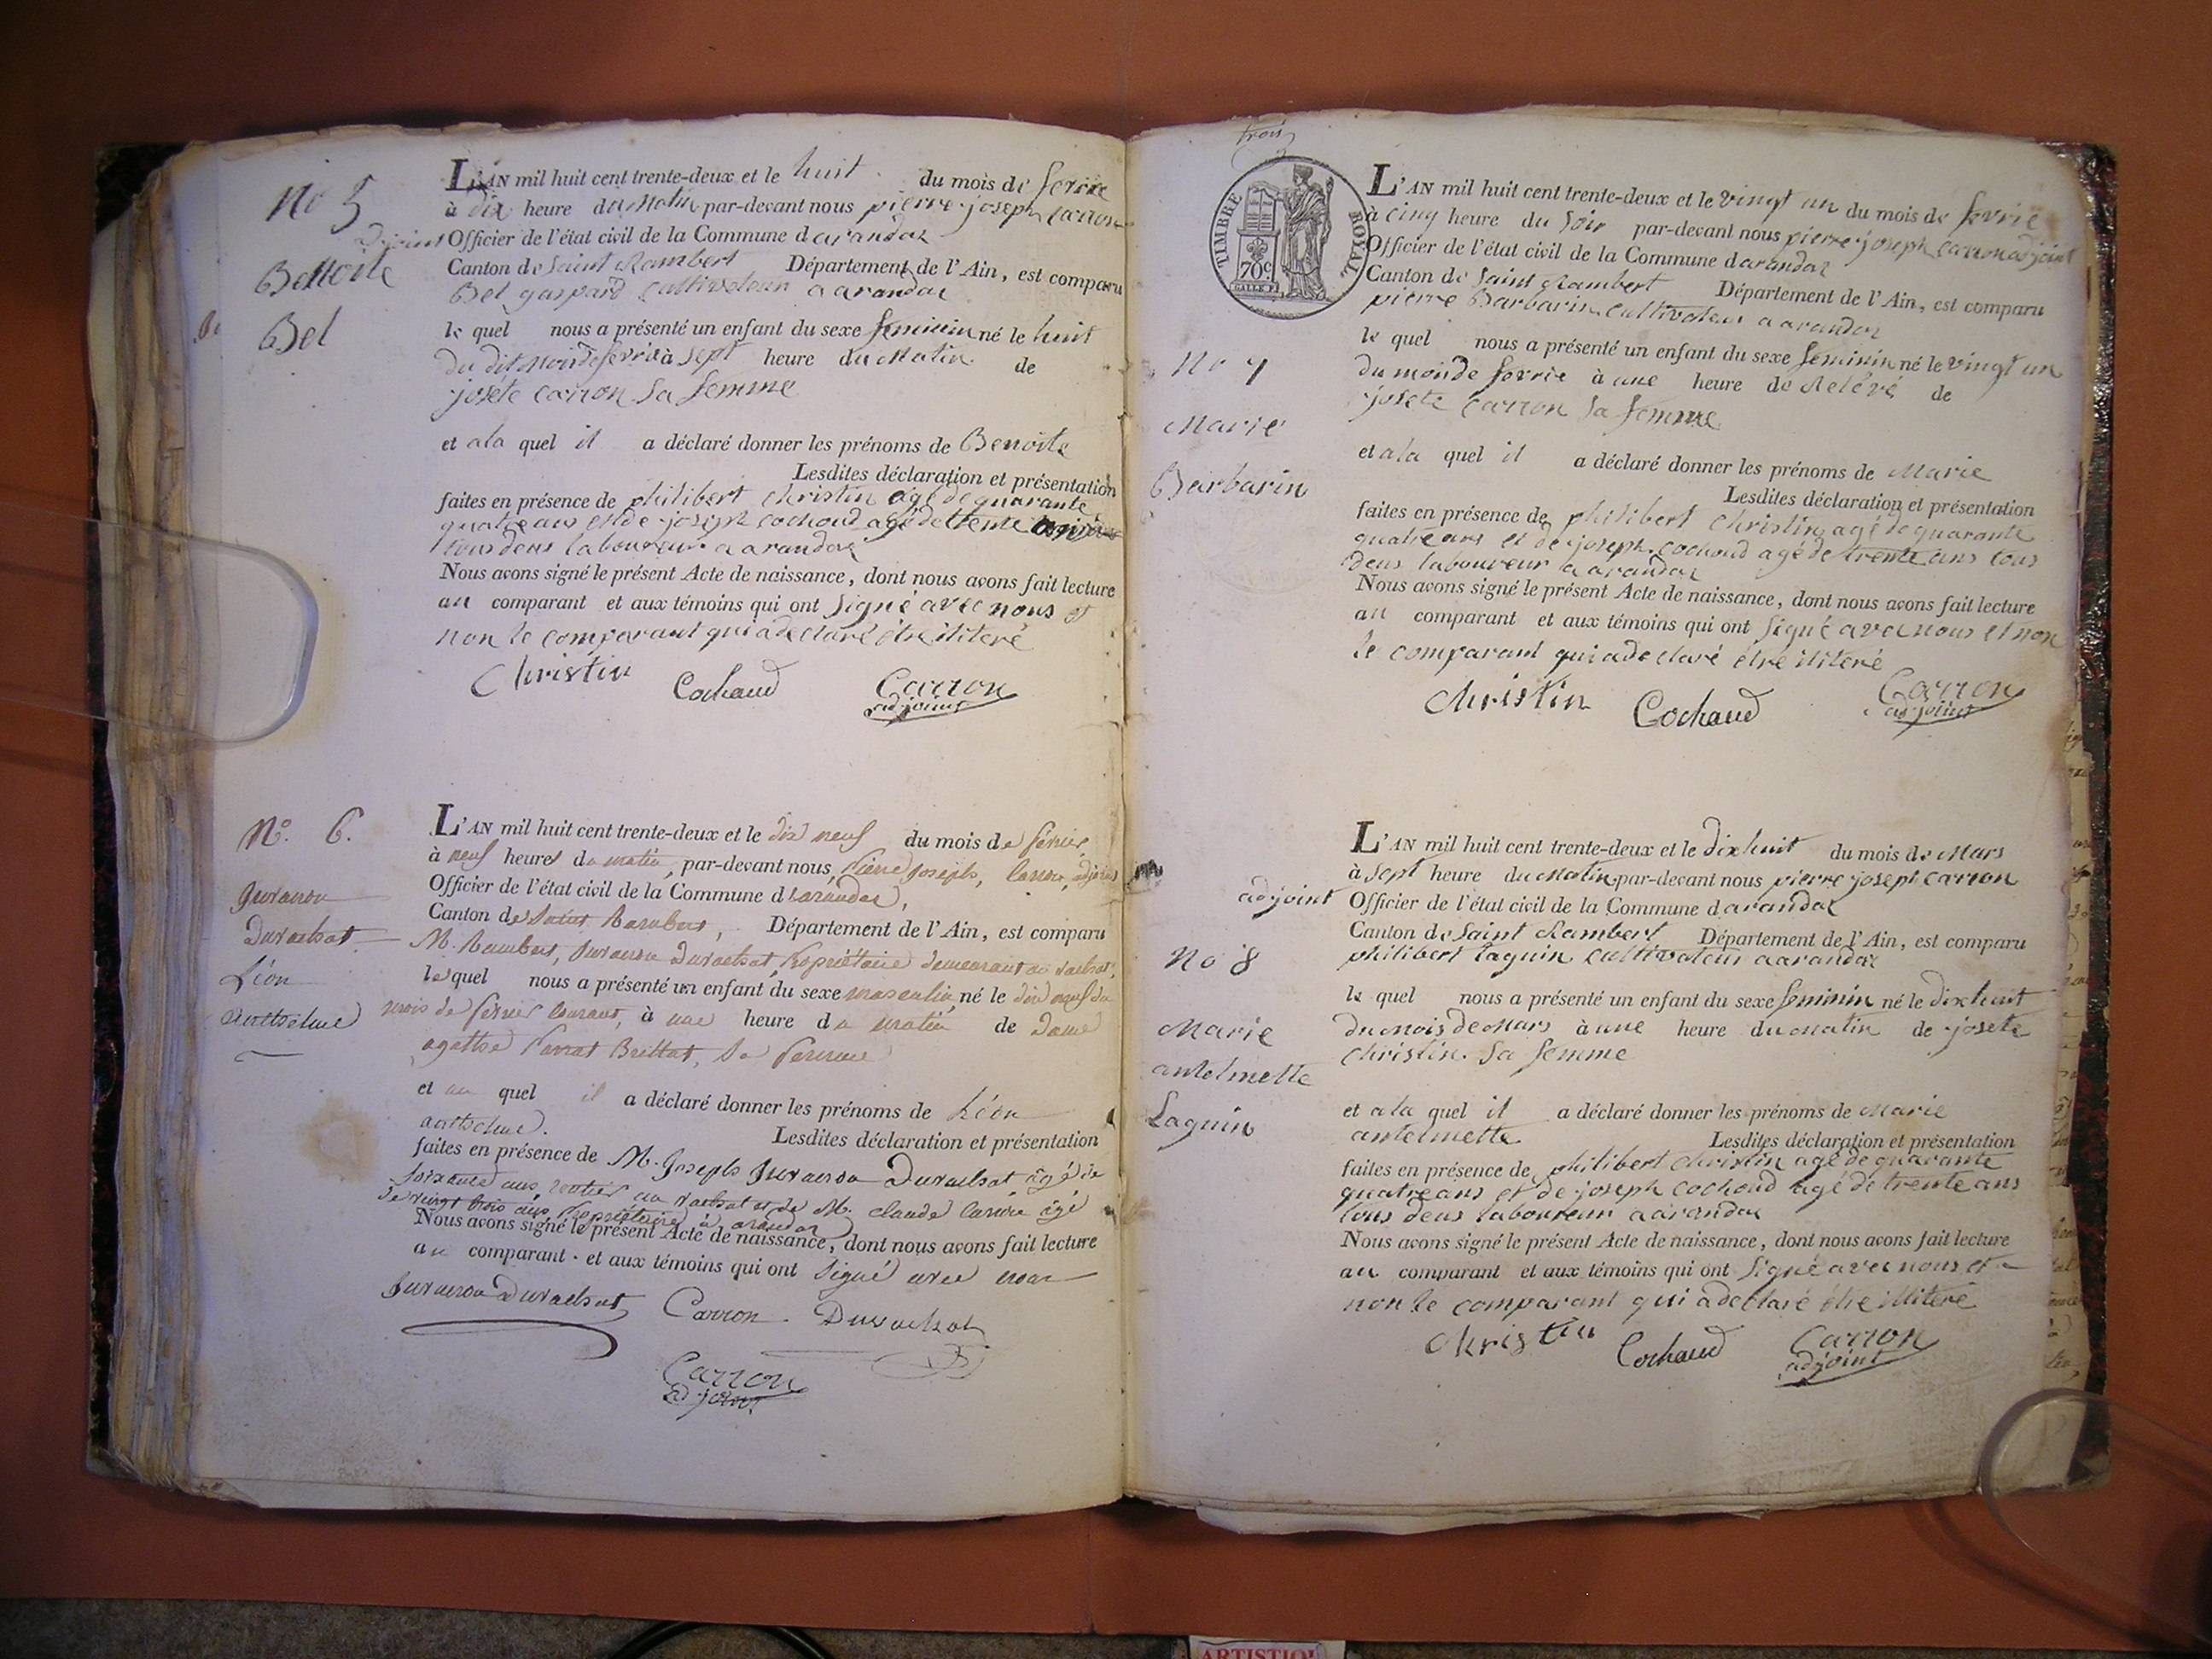 No 5
Benoite
Bel
L'AN mil huit cent trente-deux et le huit du mois de fevrie
à dix heure du Matin par-devant nous pierre joseph carron
adjoint Officier de l'état civil de la Commune d arandas
Canton de Saint Rambert Département de l'Ain, est comparu
Bel gaspard Cultivateur a arandas
le quel nous a présenté un enfant du sexe feminin né le huit
du dit mois de fevrie à sept heure du Matin de
joséte carron sa femme
et a la quel il a déclaré donner les prénoms de Benoite
Lesdites déclaration et présentation
faites en présence de philibert christin agé de quarante
quatre ans et de joseph cochoud agé de trente
tous deus laboureur a arandas
Nous avons signé le présent Acte de naissance, dont nous avons fait lecture
au comparant et aux témoins qui ont signé avec nous et
non le comparant qui a declaré étre iliteré
Christin Cochaud Carron
adjoint
N.º 6.
Juvanon
Duvachat
Léon
Anthelme
L'AN mil huit cent trente-deux et le dix neuf du mois de février
à neuf heures du matin, par-devant nous, Pierre Joseph, Carron, adjoint
Officier de l'état civil de la Commune d'arandas,
Canton de Saint Rambert, Département de l'Ain, est comparu
M. Rambert, Juvanon Duvachat, Propriétaire demeurant au vachat,
le quel nous a présenté un enfant du sexe masculin, né le dix neuf du
mois de février courant, à une heure du matin de Dame
agathe Brillat, sa femme
et au quel il a déclaré donner les prénoms de Léon
anthelme.
Lesdites déclaration et présentation
faites en présence de M. Joseph Juvanon Duvachat âgé de
soixante ans rentier au vachat et de M. claude carron âgé
de vingt trois ans, Propriétaire à arandas
Nous avons signé le présent Acte de naissance, dont nous avons fait lecture
au comparant. et aux témoins qui ont signé avec nous
Juvanon Duvachat Carron Duvachat
Carron
adjoint
trois
TIMBRE ROYAL
70 c.
L'AN mil huit cent trente-deux et le vingt un du mois de fevrie
à cinq heure du soir par-devant nous pierre joseph carron adjoint
Officier de l'état civil de la Commune d arandas
Canton de Saint Rambert Département de l'Ain, est comparu
pierre Barbarin cultivateur a arandas
le quel nous a présenté un enfant du sexe feminin né le vingt un
du moi de fevrie à une heure de Relévé de
joséte carron sa femme
et a la quel il a déclaré donner les prénoms de Marie
Lesdites déclaration et présentation
faites en présence de philibert christin agé de quarante
quatre ans et de joseph cochoud agé de trente ans tous
deus laboureur a arandas
Nous avons signé le présent Acte de naissance, dont nous avons fait lecture
au comparant et aux témoins qui ont signé avec nous et non
le comparant qui a declaré étre iliteré
Christin Cochaud Carron
adjoint
No 7
Marie
Barbarin
L'AN mil huit cent trente-deux et le dix huit du mois de Mars
à sept heure du Matin par-devant nous pierre joseph carron
adjoint Officier de l'état civil de la Commune d arandas
Canton de Saint Rambert Département de l'Ain, est comparu
philibert Laguin cultivateur a arandas
le quel nous a présenté un enfant du sexe feminin né le dix huit
du Mois de Mars à une heure du Matin de joséte
christin sa femme
et a la quel il a déclaré donner les prénoms de Marie
antelmette
Lesdites déclaration et présentation
faites en présence de philibert christin agé de quarante
quatre ans et de joseph cochoud agé de trente ans
tous deus laboureur a arandas
Nous avons signé le présent Acte de naissance, dont nous avons fait lecture
au comparant et aux témoins qui ont signé avec nous et
non le comparant qui a declaré étre illiteré
Christin Cochaud Carron
adjoint
No 8
Marie
antelmette
Laguin